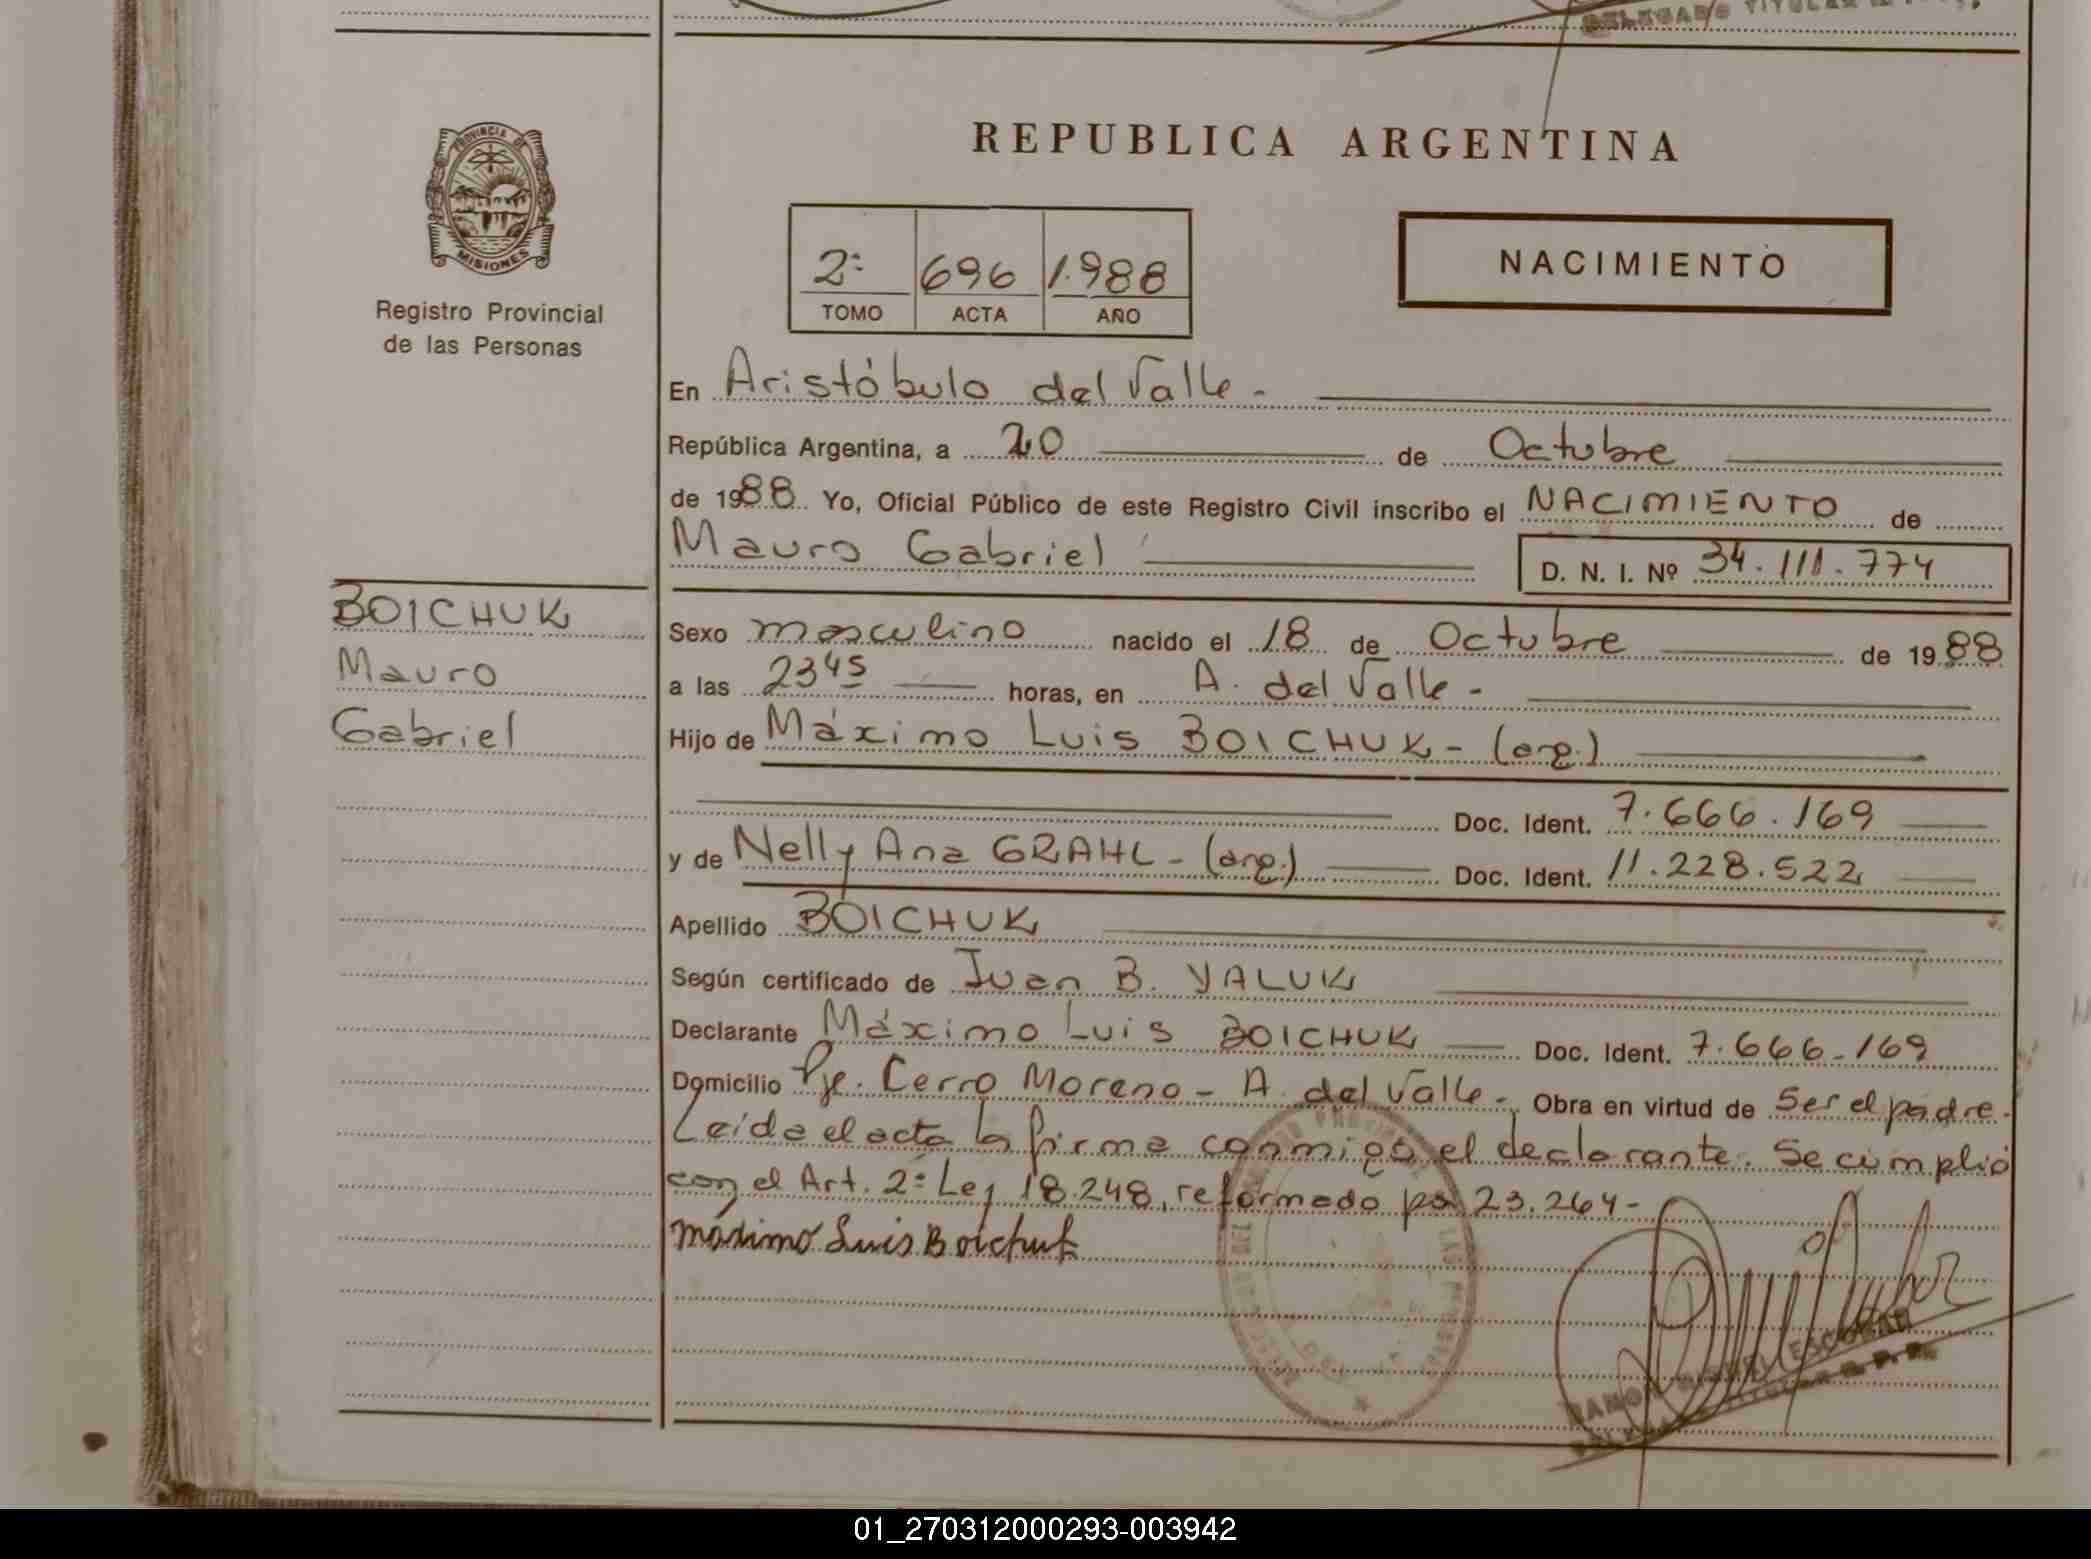 DELEGADO TITULAR
REPUBLICA ARGENTINA
PROVINCIA DE
MISIONES
Registro Provincial
de las Personas
2º 696 1.988
TOMO ACTA AÑO
NACIMIENTO
En Aristóbulo del Valle -
República Argentina, a 20 de Octubre
de 1988 Yo, Oficial Público de este Registro Civil inscribo el NACIMIENTO de
Mauro Gabriel
D. N. I. Nº 34.111.774
BOICHUK
Mauro
Gabriel
Sexo masculino nacido el 18 de Octubre de 1988
a las 23 45 horas, en A. del Valle -
Hijo de Máximo Luis BOICHUK - (arg.)
Doc. Ident. 7.666.169
y de Nelly Ana GRAHL - (arg.) Doc. Ident. 11.228.522
Apellido BOICHUK
Según certificado de Juan B. YALUK
Declarante Máximo Luis BOICHUK Doc. Ident. 7.666.169
Domicilio Pje. Cerro Moreno - A. del Valle - Obra en virtud de Ser el padre.
Leída el acta la firma conmigo el declarante. Se cumplió
con el Art. 2º Ley 18.248, reformado por 23.264 -
Máximo Luis Boichuk
ESCOBAR
TITULAR R. P. P.
01_270312000293-003942